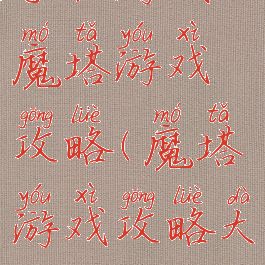 mó tǎ yóu xì
魔塔游戏
gōng lüè mó tǎ
攻略(魔塔
yóu xì gōng lüè dà
游戏攻略大